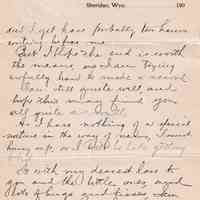 Sheridan, Wyo. 190
and I get home probably two hours
writing before me
But I hope the end is worth
the means, as I am trying
awfully hard to make a record
Am still quite well and
hope this may find you
all quite as well.
As I have nothing of a special
nature in the way of news, I must
hurry up, as I will be late getting
So with my dearest love to
you and the little ones and
lots of hugs and kisses when